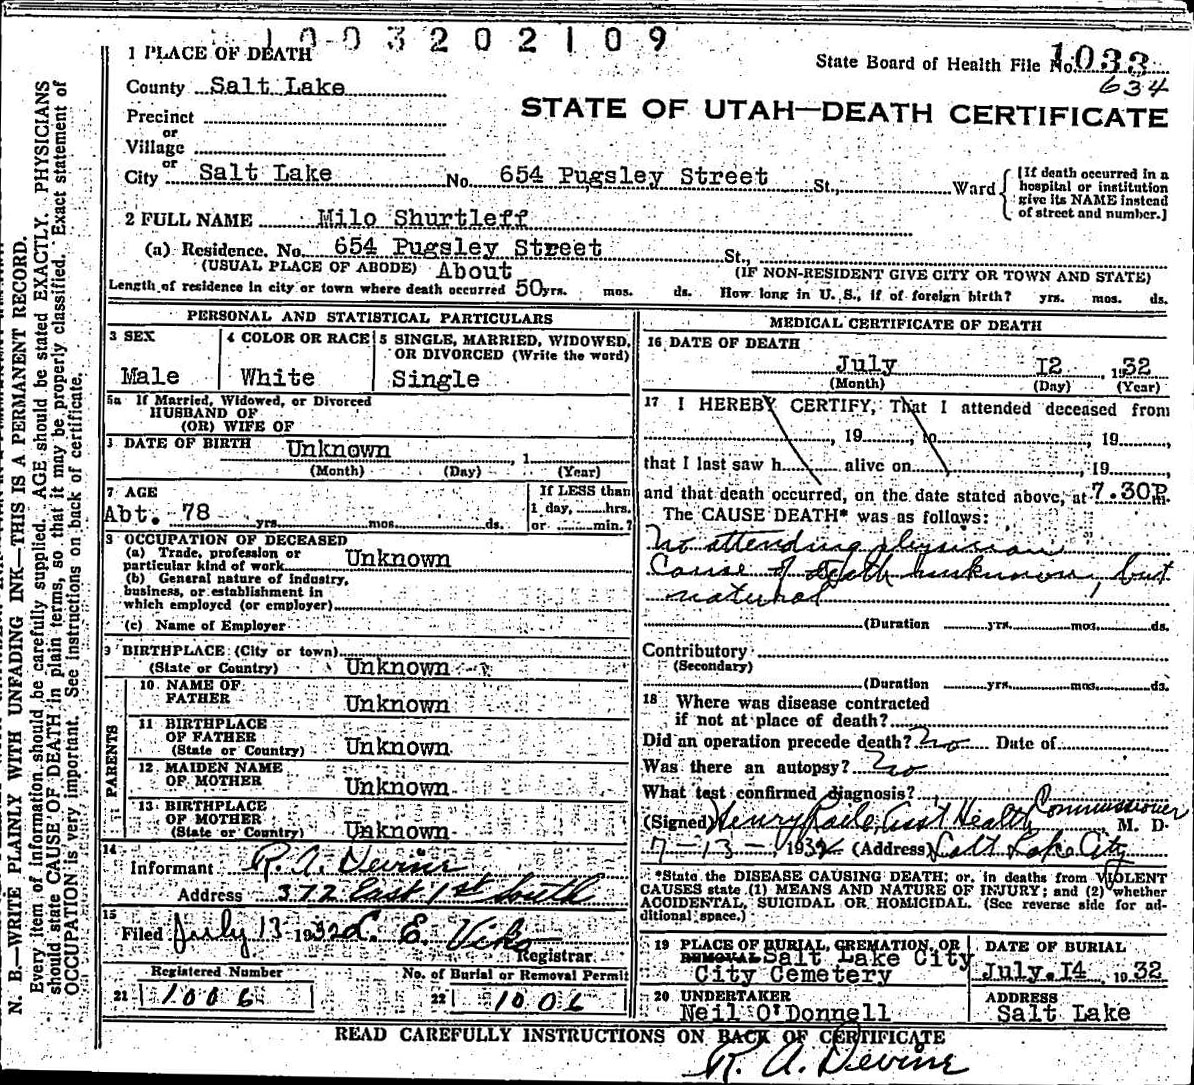 1003202109
State Board of Health File No. 1033
634
1 PLACE OF DEATH
County Salt Lake
STATE OF UTAH—DEATH CERTIFICATE
Precinct
or
Village
or
City Salt Lake No. 654 Pugsley Street St., Ward
[If death occurred in a
hospital or institution
give its NAME instead
of street and number.]
2 FULL NAME Milo Shurtleff
(a) Residence. No. 654 Pugsley Street St.,
(USUAL PLACE OF ABODE) About (IF NON-RESIDENT GIVE CITY OR TOWN AND STATE)
Length of residence in city or town where death occurred 50 yrs. mos. ds. How long in U. S., if of foreign birth? yrs. mos. ds.
PERSONAL AND STATISTICAL PARTICULARS
3 SEX
Male
4 COLOR OR RACE
White
5 SINGLE, MARRIED, WIDOWED,
OR DIVORCED (Write the word)
Single
5a If Married, Widowed, or Divorced
HUSBAND OF
(OR) WIFE OF
DATE OF BIRTH Unknown , 1
(Month) (Day) (Year)
7 AGE
Abt. 78 yrs. mos. ds.
If LESS than
1 day, hrs.
or min.?
OCCUPATION OF DECEASED
(a) Trade, profession or
particular kind of work Unknown
(b) General nature of industry,
business, or establishment in
which employed (or employer)
(c) Name of Employer
9 BIRTHPLACE (City or town)
(State or Country) Unknown
PARENTS
10 NAME OF
FATHER Unknown
11 BIRTHPLACE
OF FATHER
(State or Country) Unknown
12 MAIDEN NAME
OF MOTHER Unknown
13 BIRTHPLACE
OF MOTHER
(State or Country) Unknown
14
Informant R. A. Devine
Address 372 East 1st South
15
Filed July 13 1932
Registrar
Registered Number
21 1006
No. of Burial or Removal Permit
22 1006
MEDICAL CERTIFICATE OF DEATH
16 DATE OF DEATH
July 12 , 1932
(Month) (Day) (Year)
17 I HEREBY CERTIFY, That I attended deceased from
, 19 , to , 19 ,
that I last saw h alive on , 19 ,
and that death occurred, on the date stated above, at 7.30P m.
The CAUSE DEATH* was as follows:
No attending physician
Cause of death unknown, but
natural
(Duration yrs. mos. ds.
Contributory
(Secondary)
(Duration yrs. mos. ds.
18 Where was disease contracted
if not at place of death?
Did an operation precede death? No Date of
Was there an autopsy? No
What test confirmed diagnosis?
(Signed) Henry Asst Health Commissioner M. D.
7-13-, 1932 (Address) Salt Lake City
*State the DISEASE CAUSING DEATH; or, in deaths from VIOLENT
CAUSES state (1) MEANS AND NATURE OF INJURY; and (2) whether
ACCIDENTAL, SUICIDAL OR HOMICIDAL. (See reverse side for ad-
ditional space.)
19 PLACE OF BURIAL, CREMATION, OR
REMOVAL Salt Lake City
City Cemetery
DATE OF BURIAL
July 14 , 1932
20 UNDERTAKER
Neil O'Donnell
ADDRESS
Salt Lake
READ CAREFULLY INSTRUCTIONS ON BACK OF CERTIFICATE
R. A. Devine
N. B.—WRITE PLAINLY WITH UNFADING INK—THIS IS A PERMANENT RECORD.
Every item of information should be carefully supplied. AGE should be stated EXACTLY. PHYSICIANS
should state CAUSE OF DEATH in plain terms, so that it may be properly classified. Exact statement of
OCCUPATION is very important. See instructions on back of certificate.